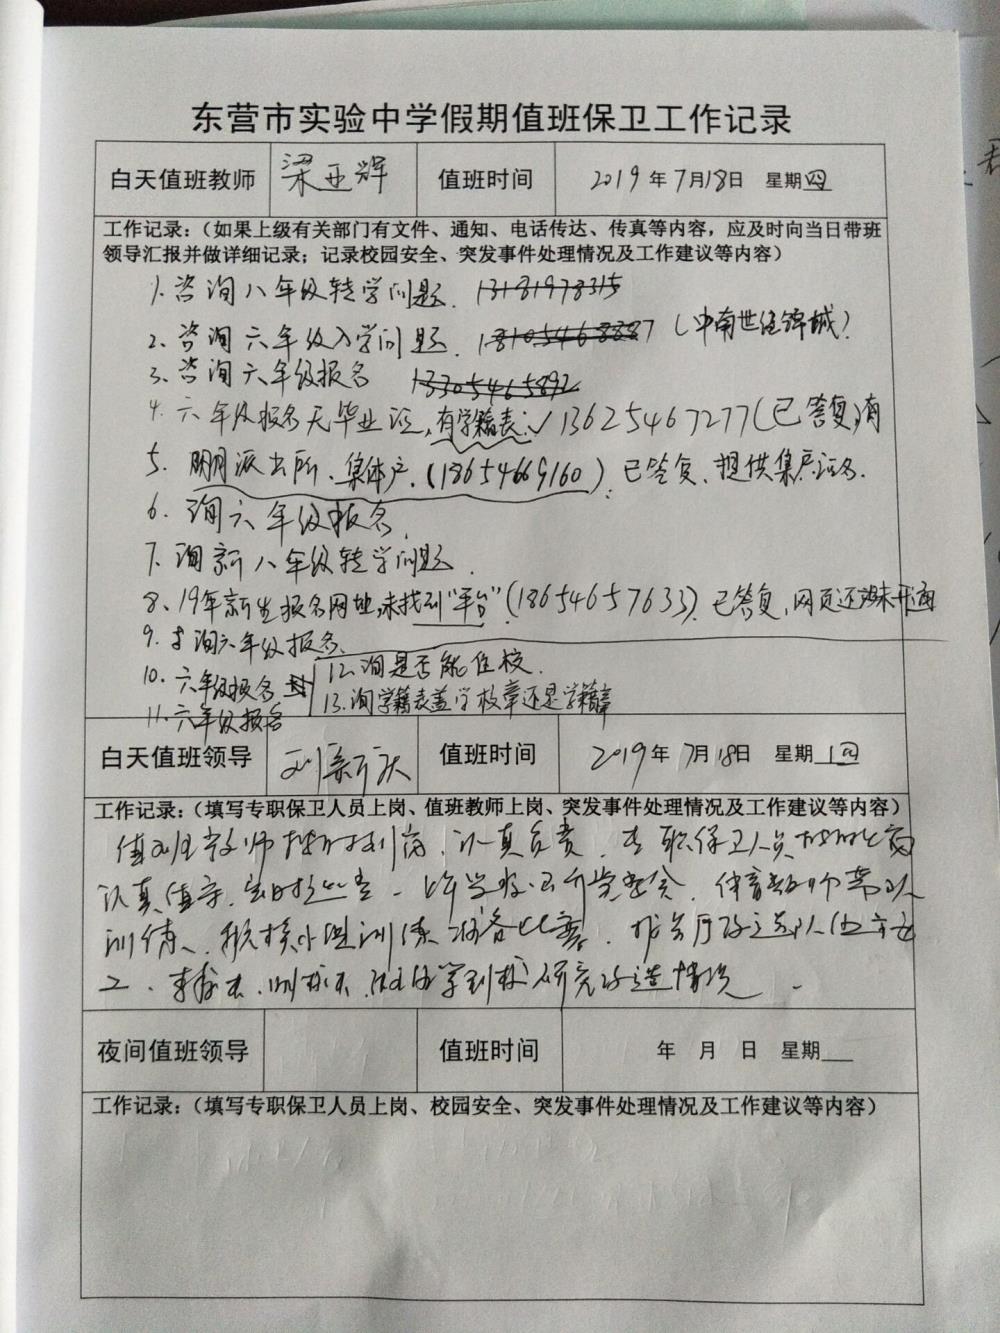 东营市实验中学假期值班保卫工作记录
白天值班教师 梁亚辉 值班时间 2019年7月18日 星期四
工作记录：（如果上级有关部门有文件、通知、电话传达、传真等内容，应及时向当日带班
领导汇报并做详细记录；记录校园安全、突发事件处理情况及工作建议等内容）
1.咨询八年级转学问题. 13181978315
2.咨询六年级入学问题. (中南世纪锦城？
3.咨询六年级报名 13305465892
4.六年级报名无毕业证,有学籍表.✓13625467277(已答复)有
5.派出所、集体户.(18654669160).已答复、提供集户证名.
6.询六年级报名.
7.询新八年级转学问题.
8、19年新生报名网址,未找到"平台".(18654657633).已答复,网页还未开通
9.询六年级报名.
10.六年级报名
11.六年级报名
12.询是否能住校.
13.询学籍表盖学校章还是学籍章
白天值班领导 刘新庆 值班时间 2019年7月18日 星期四
工作记录：（填写专职保卫人员上岗、值班教师上岗、突发事件处理情况及工作建议等内容）
值班教师按时到岗,认真负责.专职保卫人员按时上岗
认真值守,体育教师带队
训练、训练准备比赛.
到校研究改造情况.
夜间值班领导 值班时间 年 月 日 星期
工作记录：（填写专职保卫人员上岗、校园安全、突发事件处理情况及工作建议等内容）